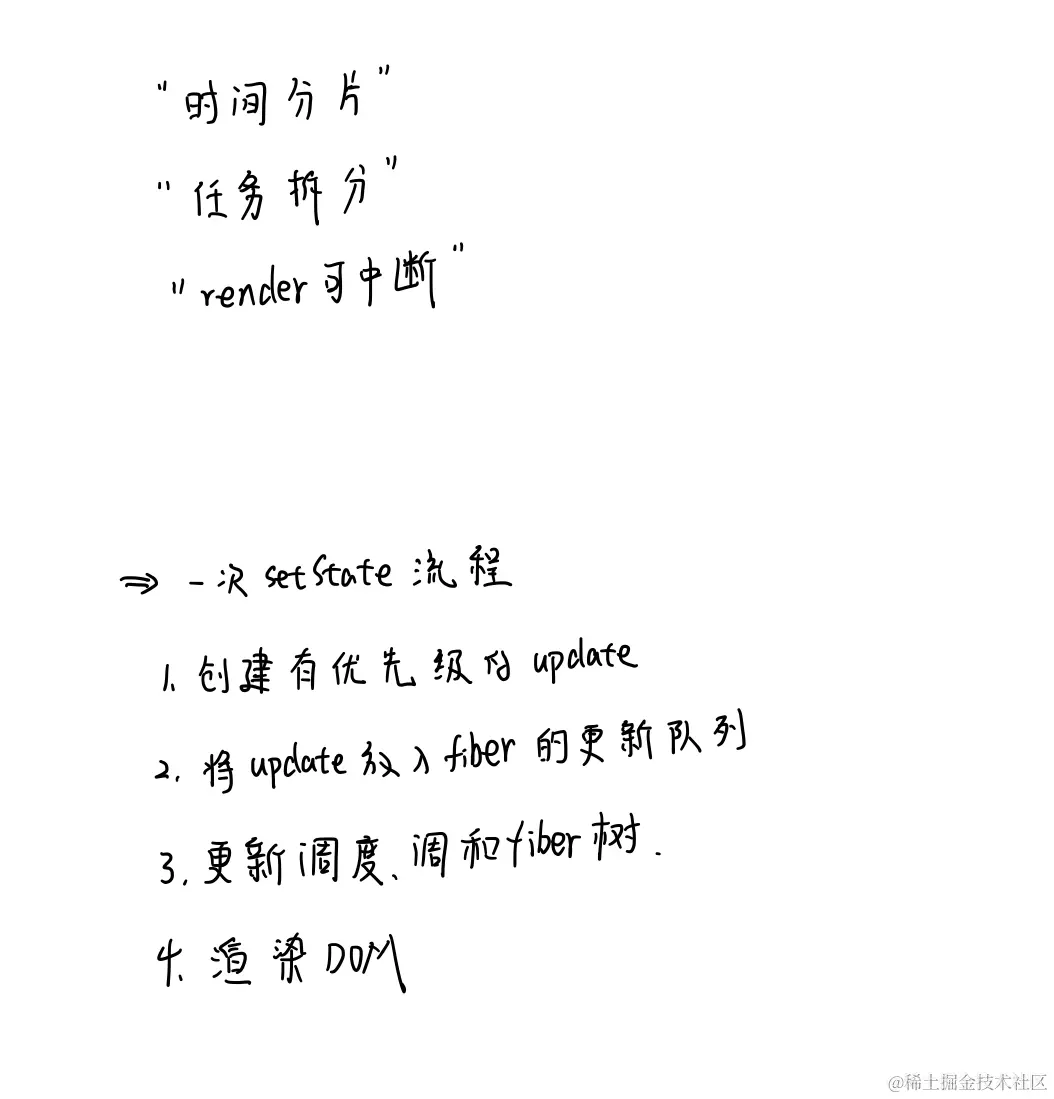 "时间分片"
"任务拆分"
"render可中断"
⇒ 一次 setState 流程
1. 创建有优先级的 update
2. 将 update 放入 fiber 的更新队列
3. 更新调度、调和fiber树.
4. 渲染 DOM
@稀土掘金技术社区